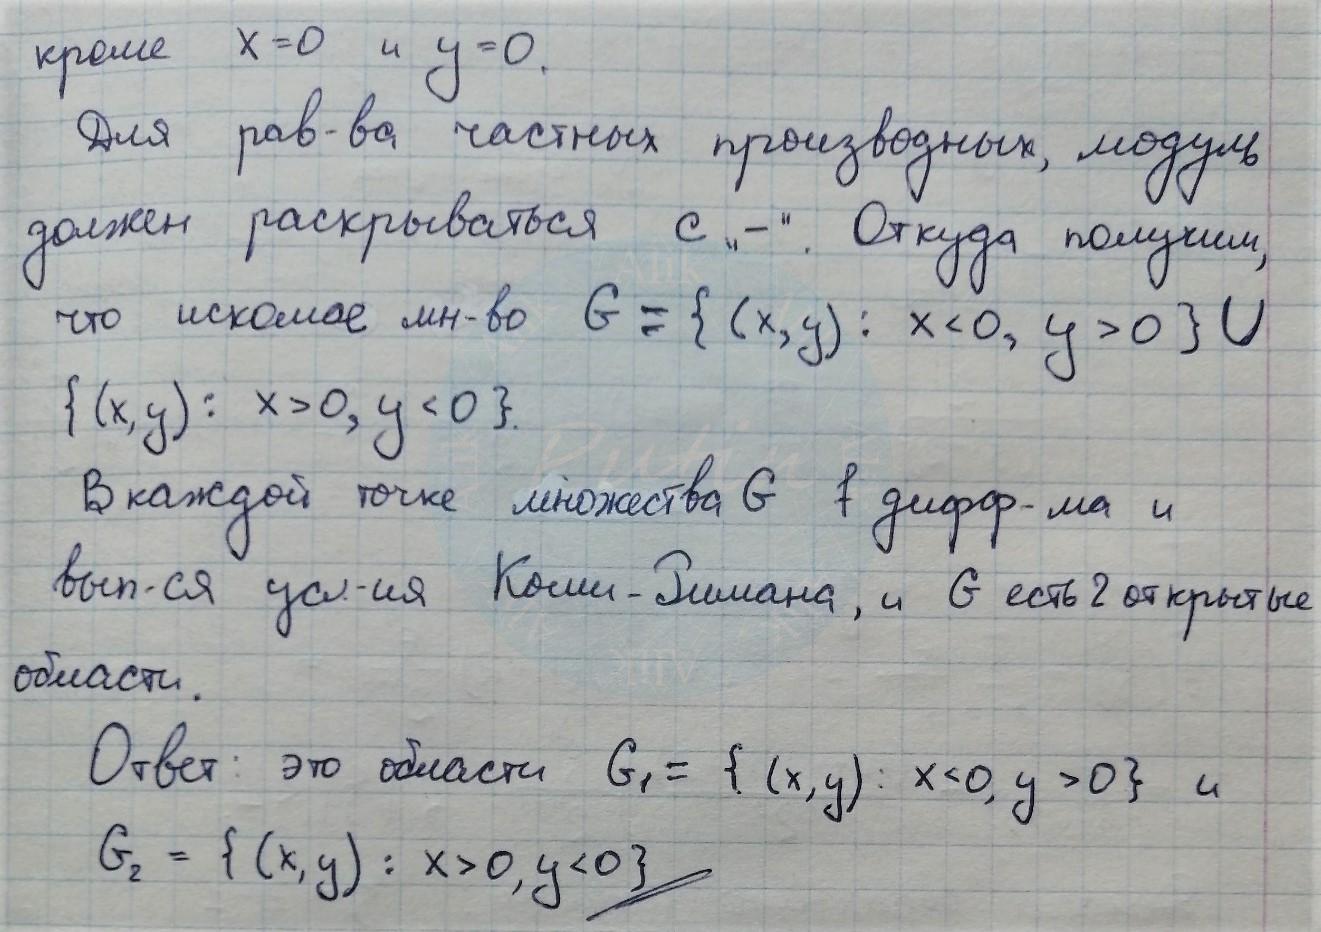 кроме x=0 и y=0.
Для рав-ва частных производных, модуль
должен раскрываться с „-“. Откуда получим,
что искомое мн-во G = { (x,y) : x<0, y>0 } ∪
{ (x,y) : x>0, y<0 }.
В каждой точке множества G f дифф-ма и
вып-ся усл-ия Коши-Римана, и G есть 2 открытые
области.
Ответ: это области G₁ = { (x,y) : x<0, y>0 } и
G₂ = { (x,y) : x>0, y<0 }